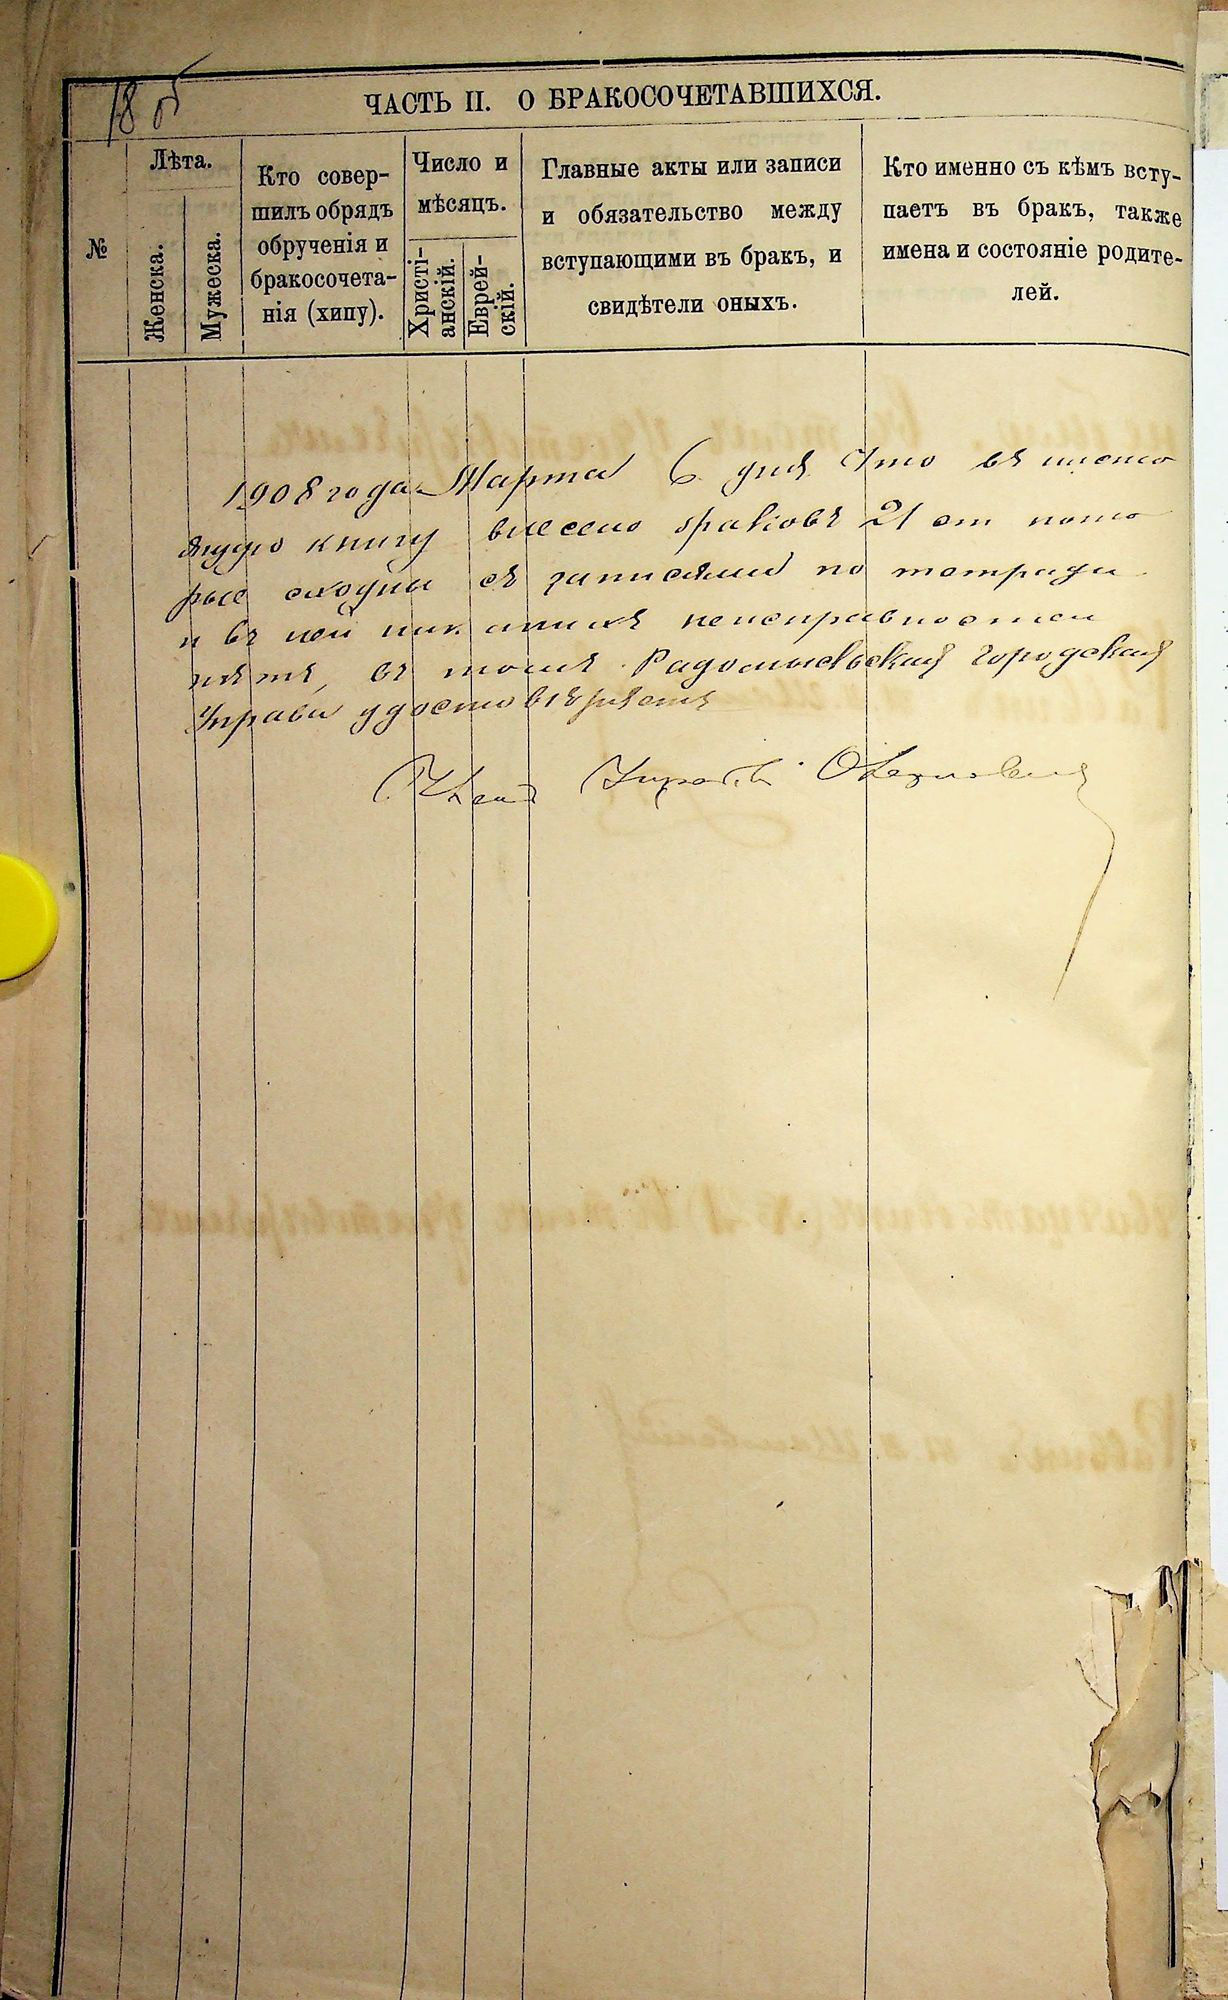 18 об
ЧАСТЬ II. О БРАКОСОЧЕТАВШИХСЯ.
№
Лѣта.
Женска.
Мужеска.
Кто совер-
шилъ обрядъ
обрученія и
бракосочета-
нія (хипу).
Число и
мѣсяцъ.
Христі-
анскій.
Еврей-
скій.
Главные акты или записи
и обязательство между
вступающими въ бракъ, и
свидѣтели оныхъ.
Кто именно съ кѣмъ всту-
паетъ въ бракъ, также
имена и состояніе родите-
лей.
1908 года Марта 6 дня Что въ насто
ящую книгу внесено браковъ 21 кото
рые сходны съ записями по тетради
и въ ней никакихъ неисправностей
нѣтъ, въ томъ Радомысльская Городская
Управа удостовѣряетъ
Членъ Управы